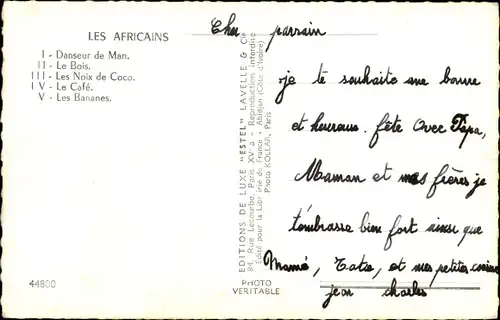 LES AFRICAINS
I - Danseur de Man.
II - Le Bois.
III - Les Noix de Coco.
IV - Le Café.
V - Les Bananes.
44800
EDITIONS DE LUXE "ESTEL" LAVELLE & Cie
84, Rue Lecourbe, Paris XVe - Reproduction interdite
Edité pour la Librairie de France - Abidjan (Côte d'Ivoire)
Photo KOLLAR, Paris
PHOTO
VERITABLE
Cher parrain
je te souhaite une bonne
et heureuse fête avec Papa,
Maman et mes frères je
t'embrasse bien fort ainsi que
Mamé, Tata, et mes petites
jean charles